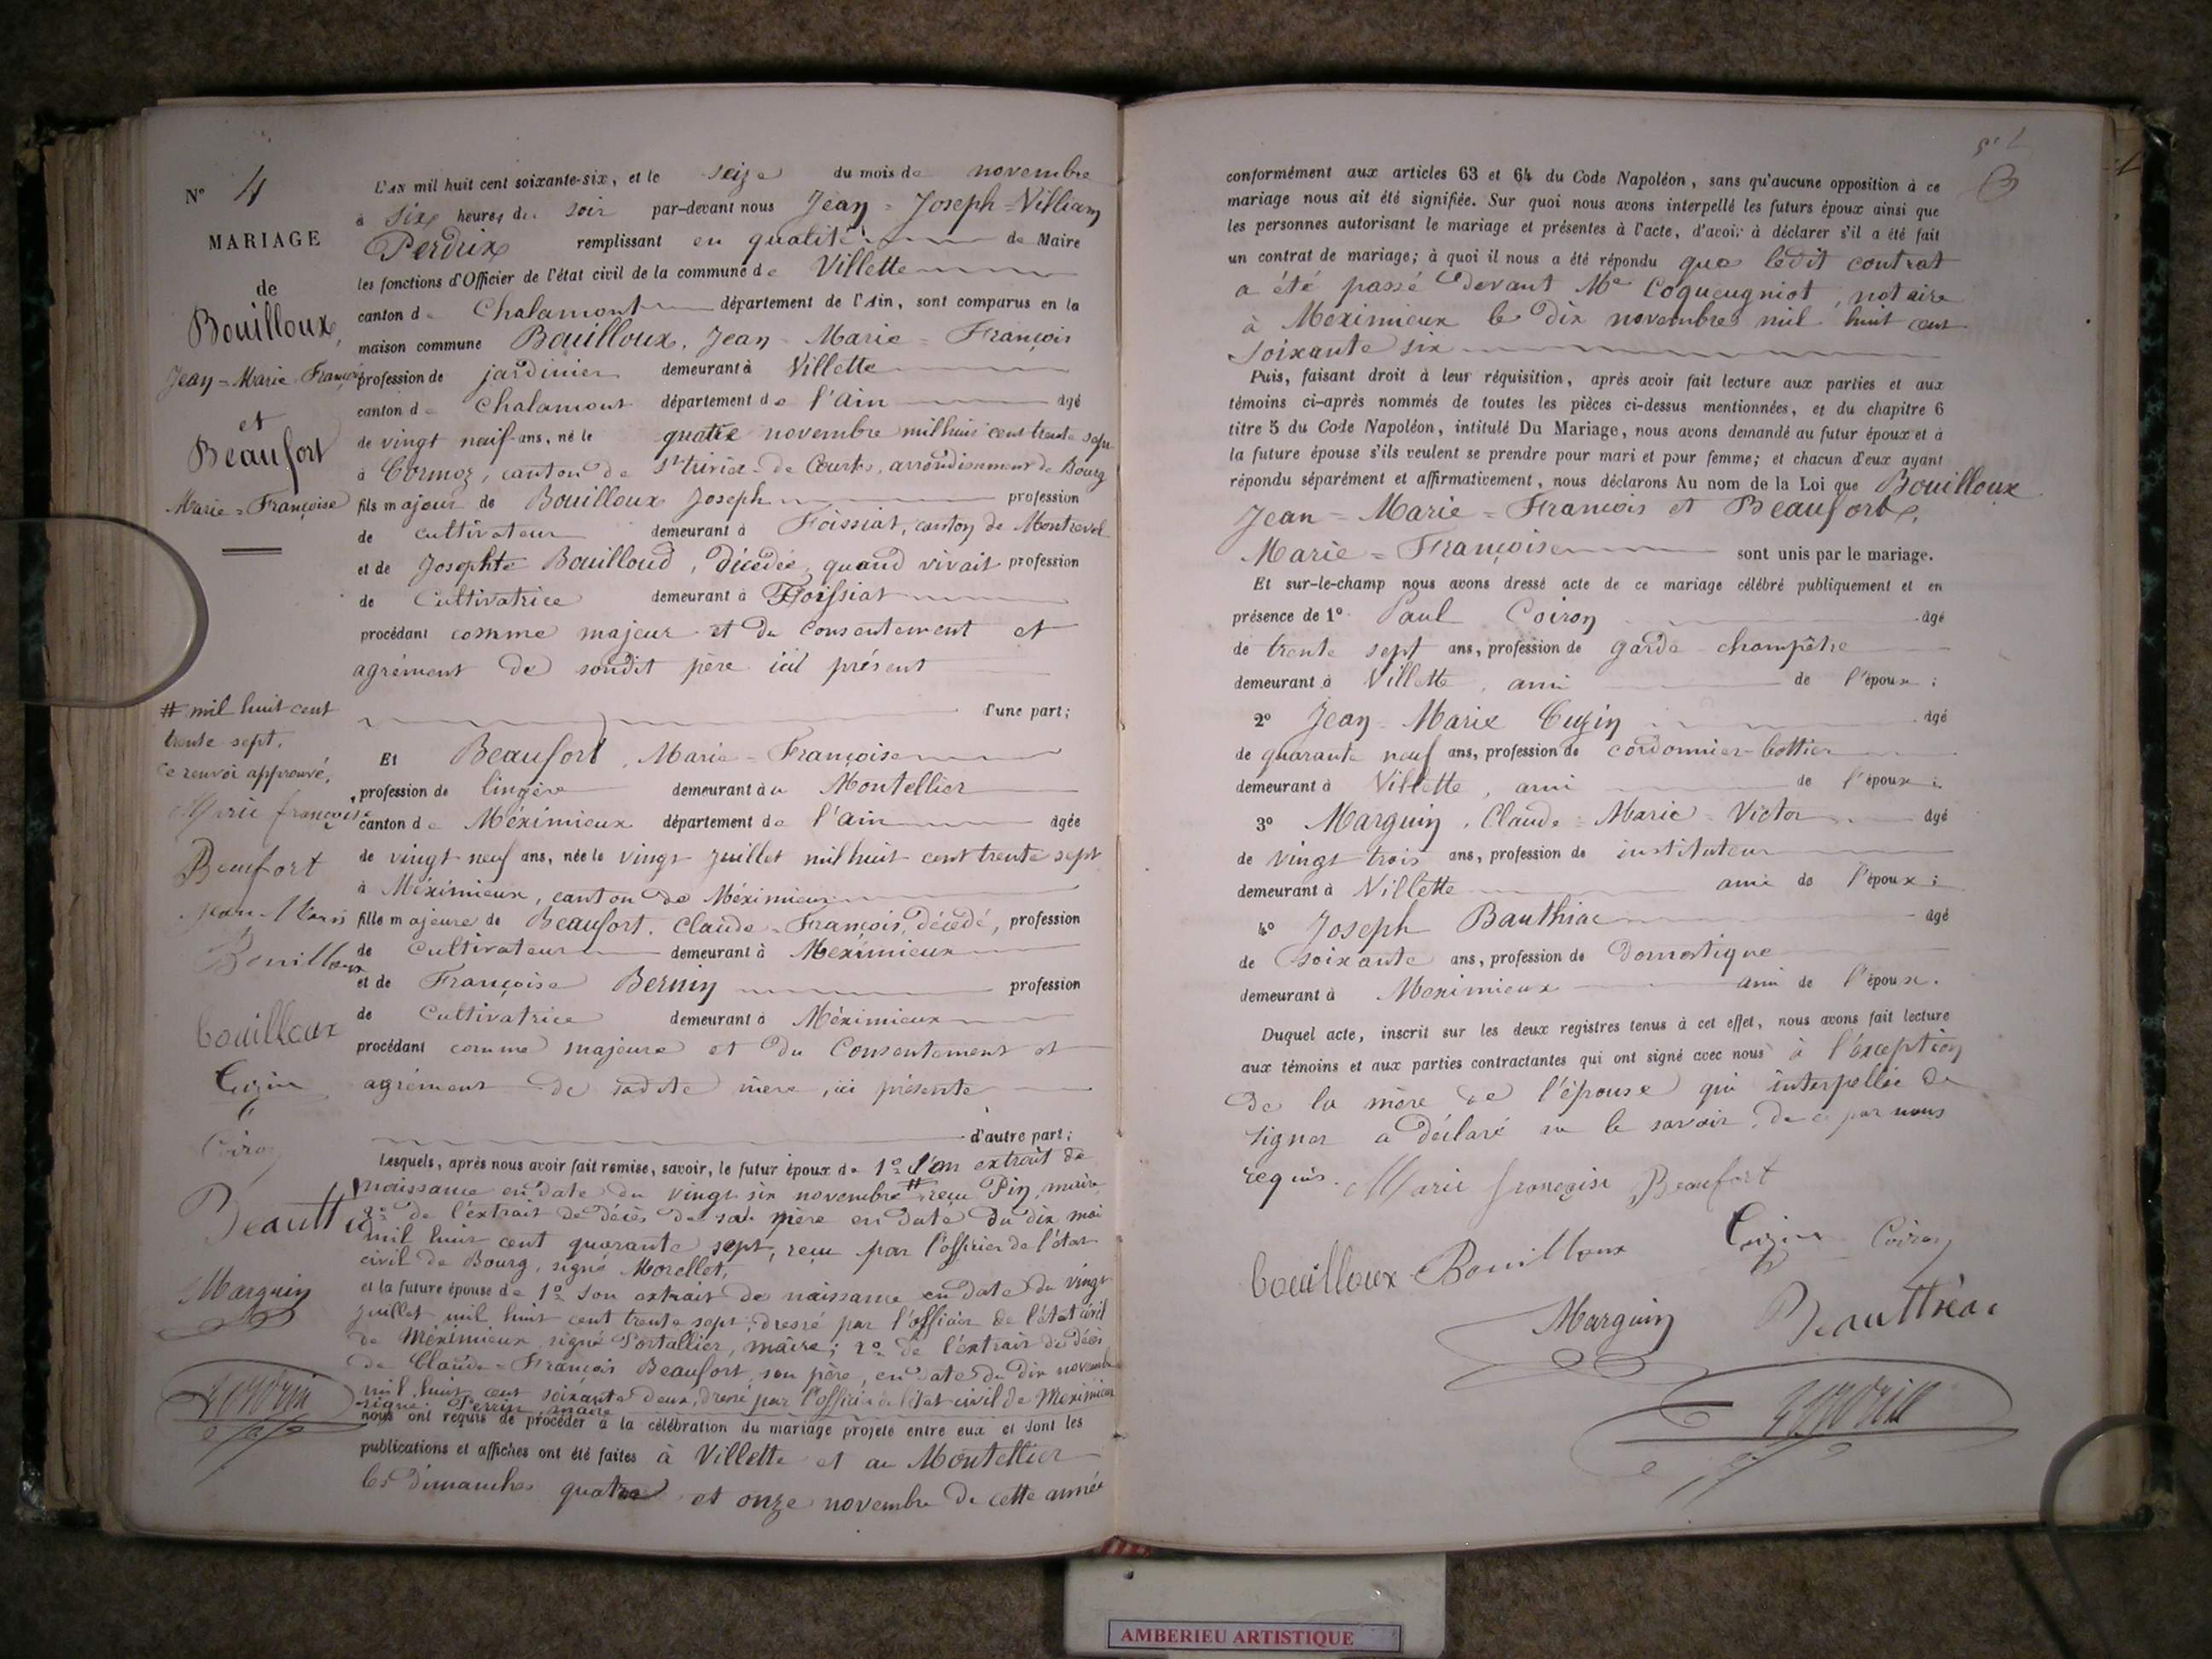 N° 4
MARIAGE
de
Bouilloux,
Jean=Marie François
et
Beaufort
Marie=Françoise
# mil huit cent
trente sept.
Ce renvoi approuvé,
Marie françoise
Beaufort
Jean-Marie
Bouilloux
bouilloux
Cuzin
Coiron
Beautthiac
Marguin
L'AN mil huit cent soixante-six, et le seize du mois de novembre
à six heures du soir par-devant nous Jean=Joseph=William
Perdrix remplissant en qualité de Maire
les fonctions d'Officier de l'état civil de la commune de Villette
canton de Chalamont département de l'Ain, sont comparus en la
maison commune Bouilloux, Jean=Marie=François
profession de jardinier demeurant à Villette
canton de Chalamont département de l'Ain âgé
de vingt neuf ans, né le quatre novembre mil huit cent trente sept
à Cormoz, canton de St trivier-de Courtes, arrondissement de Bourg
fils majeur de Bouilloux Joseph profession
de cultivateur demeurant à Foissiat, canton de Montrevel
et de Josephte Bouilloud, décédée, quand vivait profession
de Cultivatrice demeurant à Foissiat
procédant comme majeur et du Consentement et
agrément de sondit père ici présent
d'une part;
Et Beaufort, Marie=Françoise
profession de lingère demeurant à au Montellier
canton de Méximieux département de l'Ain âgée
de vingt neuf ans, née le vingt juillet mil huit cent trente sept
à Méximieux, canton de Méximieux
fille majeure de Beaufort, Claude=François, décédé, profession
de Cultivateur demeurant à Meximieux
et de Françoise Bernin profession
de Cultivatrice demeurant à Méximieux
procédant comme majeure et du Consentement et
agrément de sadite mère, ici présente
d'autre part;
Lesquels, après nous avoir fait remise, savoir, le futur époux de 1° d'un extrait de
naissance en date du vingt six novembre # reçu Pin, maire,
2° de l'extrait de décès de sa mère en date du dix mai
mil huit cent quarante sept, reçu par l'officier de l'état
civil de Bourg, signé Morellet,
et la future épouse de 1° son extrait de naissance en date du vingt
juillet mil huit cent trente sept, dressé par l'officier de l'état civil
de Méximieux, signé Portallier, maire; 2° de l'extrait de décès
de Claude=François Beaufort, son père, en date du dix novembre
mil huit cent soixante deux, dressé par l'officier de l'état civil de Meximieux
signé Perrin, maire
nous ont requis de procéder à la célébration du mariage projeté entre eux et dont les
publications et affiches ont été faites à Villette et au Montellier
les dimanches quatre et onze novembre de cette année
conformément aux articles 63 et 64 du Code Napoléon, sans qu'aucune opposition à ce
mariage nous ait été signifiée. Sur quoi nous avons interpellé les futurs époux ainsi que
les personnes autorisant le mariage et présentes à l'acte, d'avoir à déclarer s'il a été fait
un contrat de mariage; à quoi il nous a été répondu que ledit contrat
a été passé devant Me Coqueugniot, notaire
à Méximieux le dix novembre mil huit cent
soixante six
Puis, faisant droit à leur réquisition, après avoir fait lecture aux parties et aux
témoins ci-après nommés de toutes les pièces ci-dessus mentionnées, et du chapitre 6
titre 5 du Code Napoléon, intitulé Du Mariage, nous avons demandé au futur époux et à
la future épouse s'ils veulent se prendre pour mari et pour femme; et chacun d'eux ayant
répondu séparément et affirmativement, nous déclarons Au nom de la Loi que Bouilloux
Jean=Marie=François et Beaufort,
Marie=Françoise sont unis par le mariage.
Et sur-le-champ nous avons dressé acte de ce mariage célébré publiquement et en
présence de 1° Paul Coiron âgé
de trente sept ans, profession de garde champêtre
demeurant à Villette, ami de l'époux;
2° Jean-Marie Cuzin âgé
de quarante neuf ans, profession de cordonnier-bottier
demeurant à Villette, ami de l'époux;
3° Marguin, Claude=Marie=Victor âgé
de vingt trois ans, profession de instituteur
demeurant à Villette ami de l'époux;
4° Joseph Bauthiac âgé
de soixante ans, profession de domestique
demeurant à Meximieux ami de l'époux.
Duquel acte, inscrit sur les deux registres tenus à cet effet, nous avons fait lecture
aux témoins et aux parties contractantes qui ont signé avec nous à l'exception
de la mère de l'épouse qui interpellée de
signer a déclaré ne le savoir, de ce par nous
requis. Marie françoise Beaufort
bouilloux Bouilloux Cuzin Coiron
Marguin Beautthiac
AMBERIEU ARTISTIQUE